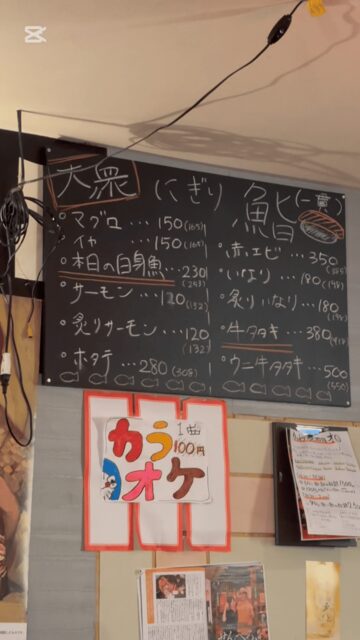 大衆 にぎり 鮨(一貫)
°マグロ … 150(165)
°イカ … 150(165)
°本日の白身魚 … 230(253)
°サーモン … 120(132)
°炙りサーモン … 120(132)
°ホタテ … 280(308)
°赤エビ … 350(385)
°いなり … 180(198)
°炙りいなり … 180(198)
°牛タタキ … 380(418)
°ウニ牛タタキ … 500(550)
カラオケ
1曲
100円